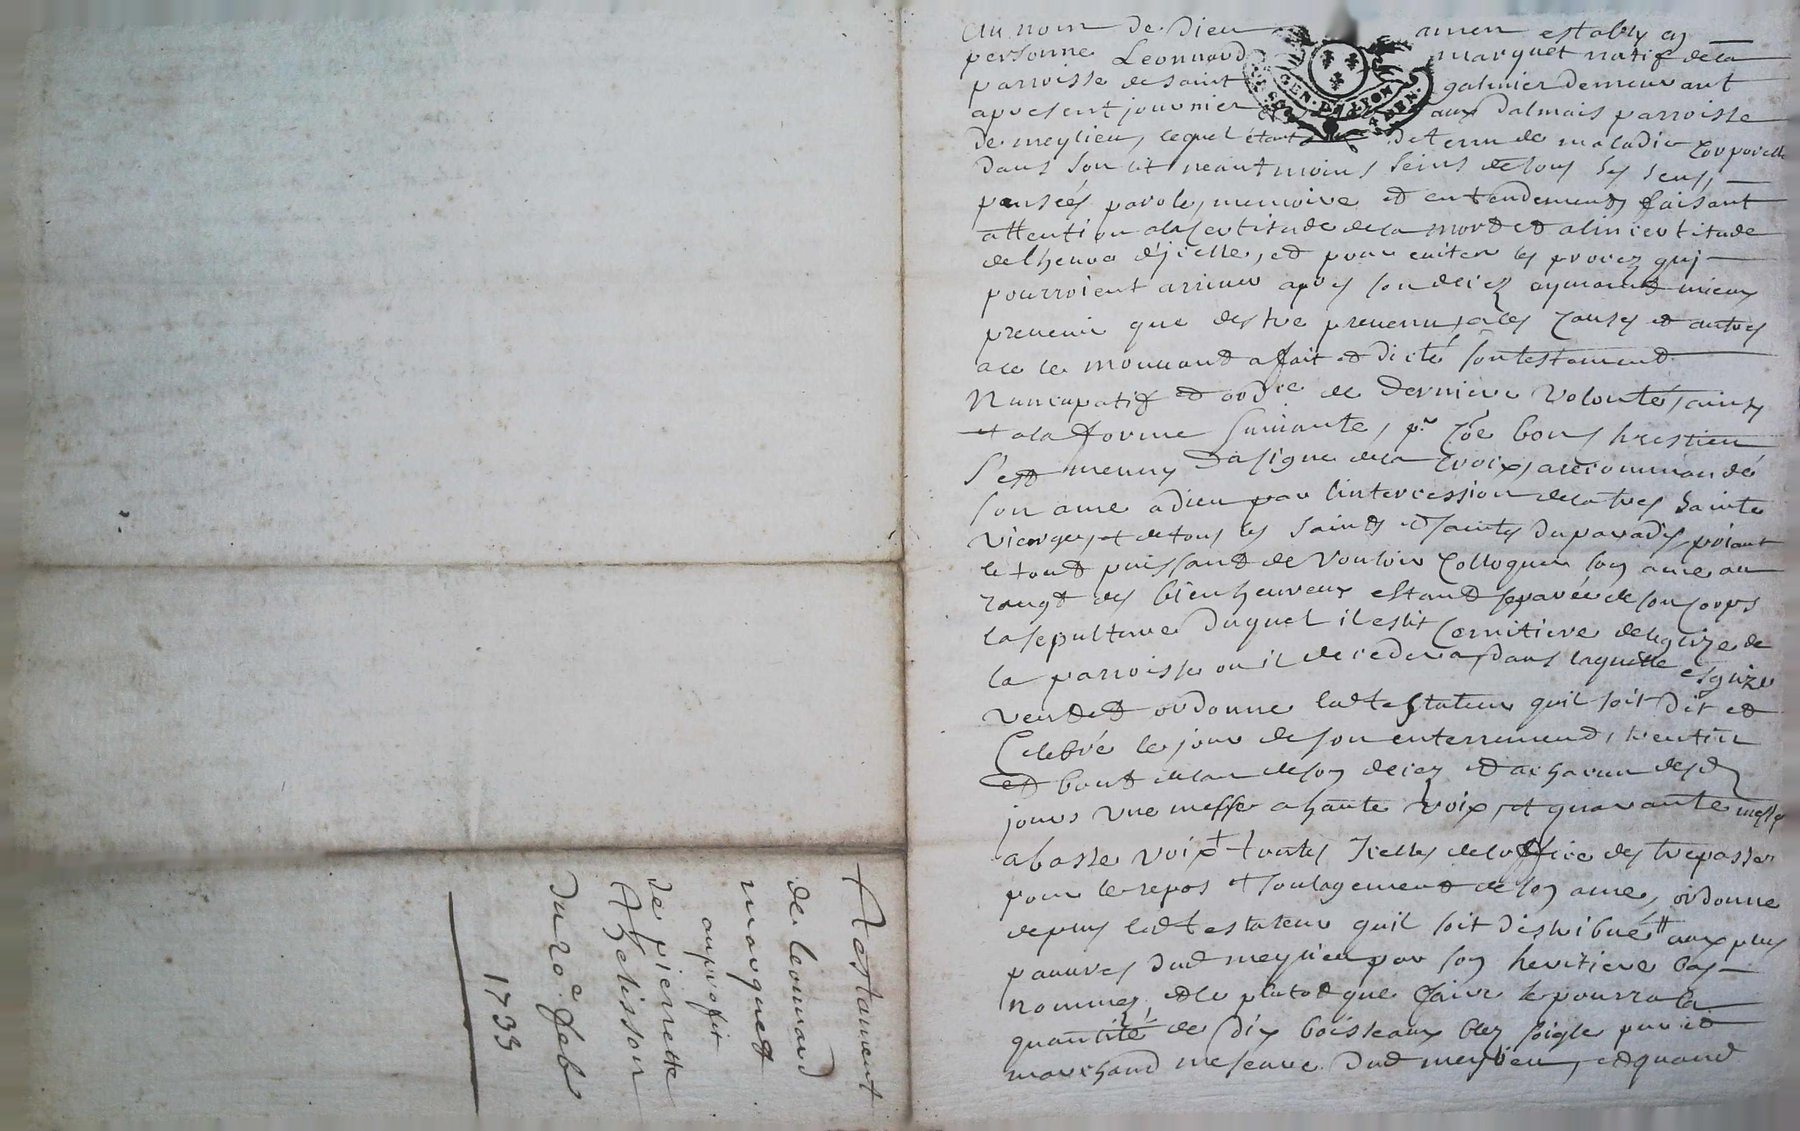 Testament
de leonnard
marquet
au profit
de pierrette
du 20e feb
1733
Au nom de Dieu amen estably en
personne Leonnard marquet natif de la
parroisse de saint galmier demeurant
apresent journier aux Dalmais parroisse
de meylieu, lequel étant detenu de maladie corporelle
dans son lit neantmoins seins de tous ses sens,
pensées parole, memoire et entendement, faisant
attention a la sertitude de la mort et a lincertitude
de lheure d'jcelle, et pour eviter les procez qui
pourroient arriver apres son decez aymant mieux
prevenir que destre prevenu, a ces causes et autres
a ce le mouvant a fait et dicté son testament
Nuncupatif et ordre de derniere volonté, ainsy
et a la forme suivante, pr coe bon chrestien
s'est meuny du signe de la croix, a recommandé
son ame a dieu par lintercession de la tres sainte
vierge, et de tous les saints et saintes du paradis, priant
le tout puissant de vouloir colloquer son ame au
rangt des bienheureux estant separée de son corps
la sepulture duquel il eslit cemitiere de leglize de
la parroisse ou il decedera, dans laquelle esglize
veut et ordonne led testateur quil soit dit et
Celebré le jour de son enterrement, trentin
et bout de lan de son decez et a chacun desd
jours une messe a haute voix, et quarante messes
a basse voix + toutes Icelles de loffice des trepassez
pour le repos et soulagement de son ame, ordonne
de plus led testateur quil soit distribué # aux plus
pauvres dud meylieu par son heritiere bas
nommée, et le plutot que faire se pourra la
quantité de dix boisseaux blez soigle pur et
marchand mesure dud meylieu, et quand